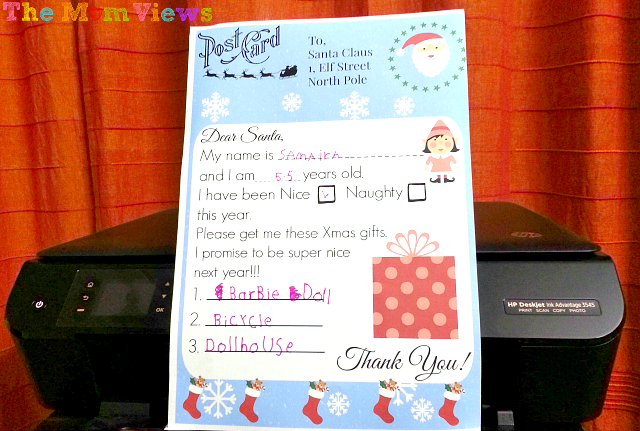 The MomViews
Post Card
To,
Santa Claus
1, Elf Street
North Pole
Dear Santa,
My name is SAMAIRA
and I am 5.5 years old.
I have been Nice ✓ Naughty
this year.
Please get me these Xmas gifts.
I promise to be super nice
next year!!!
1. BarBie Doll
2. Bicycle
3. DollhoUse
Thank You!
HP Deskjet Ink Advantage 3545
PRINT SCAN COPY PHOTO
OK